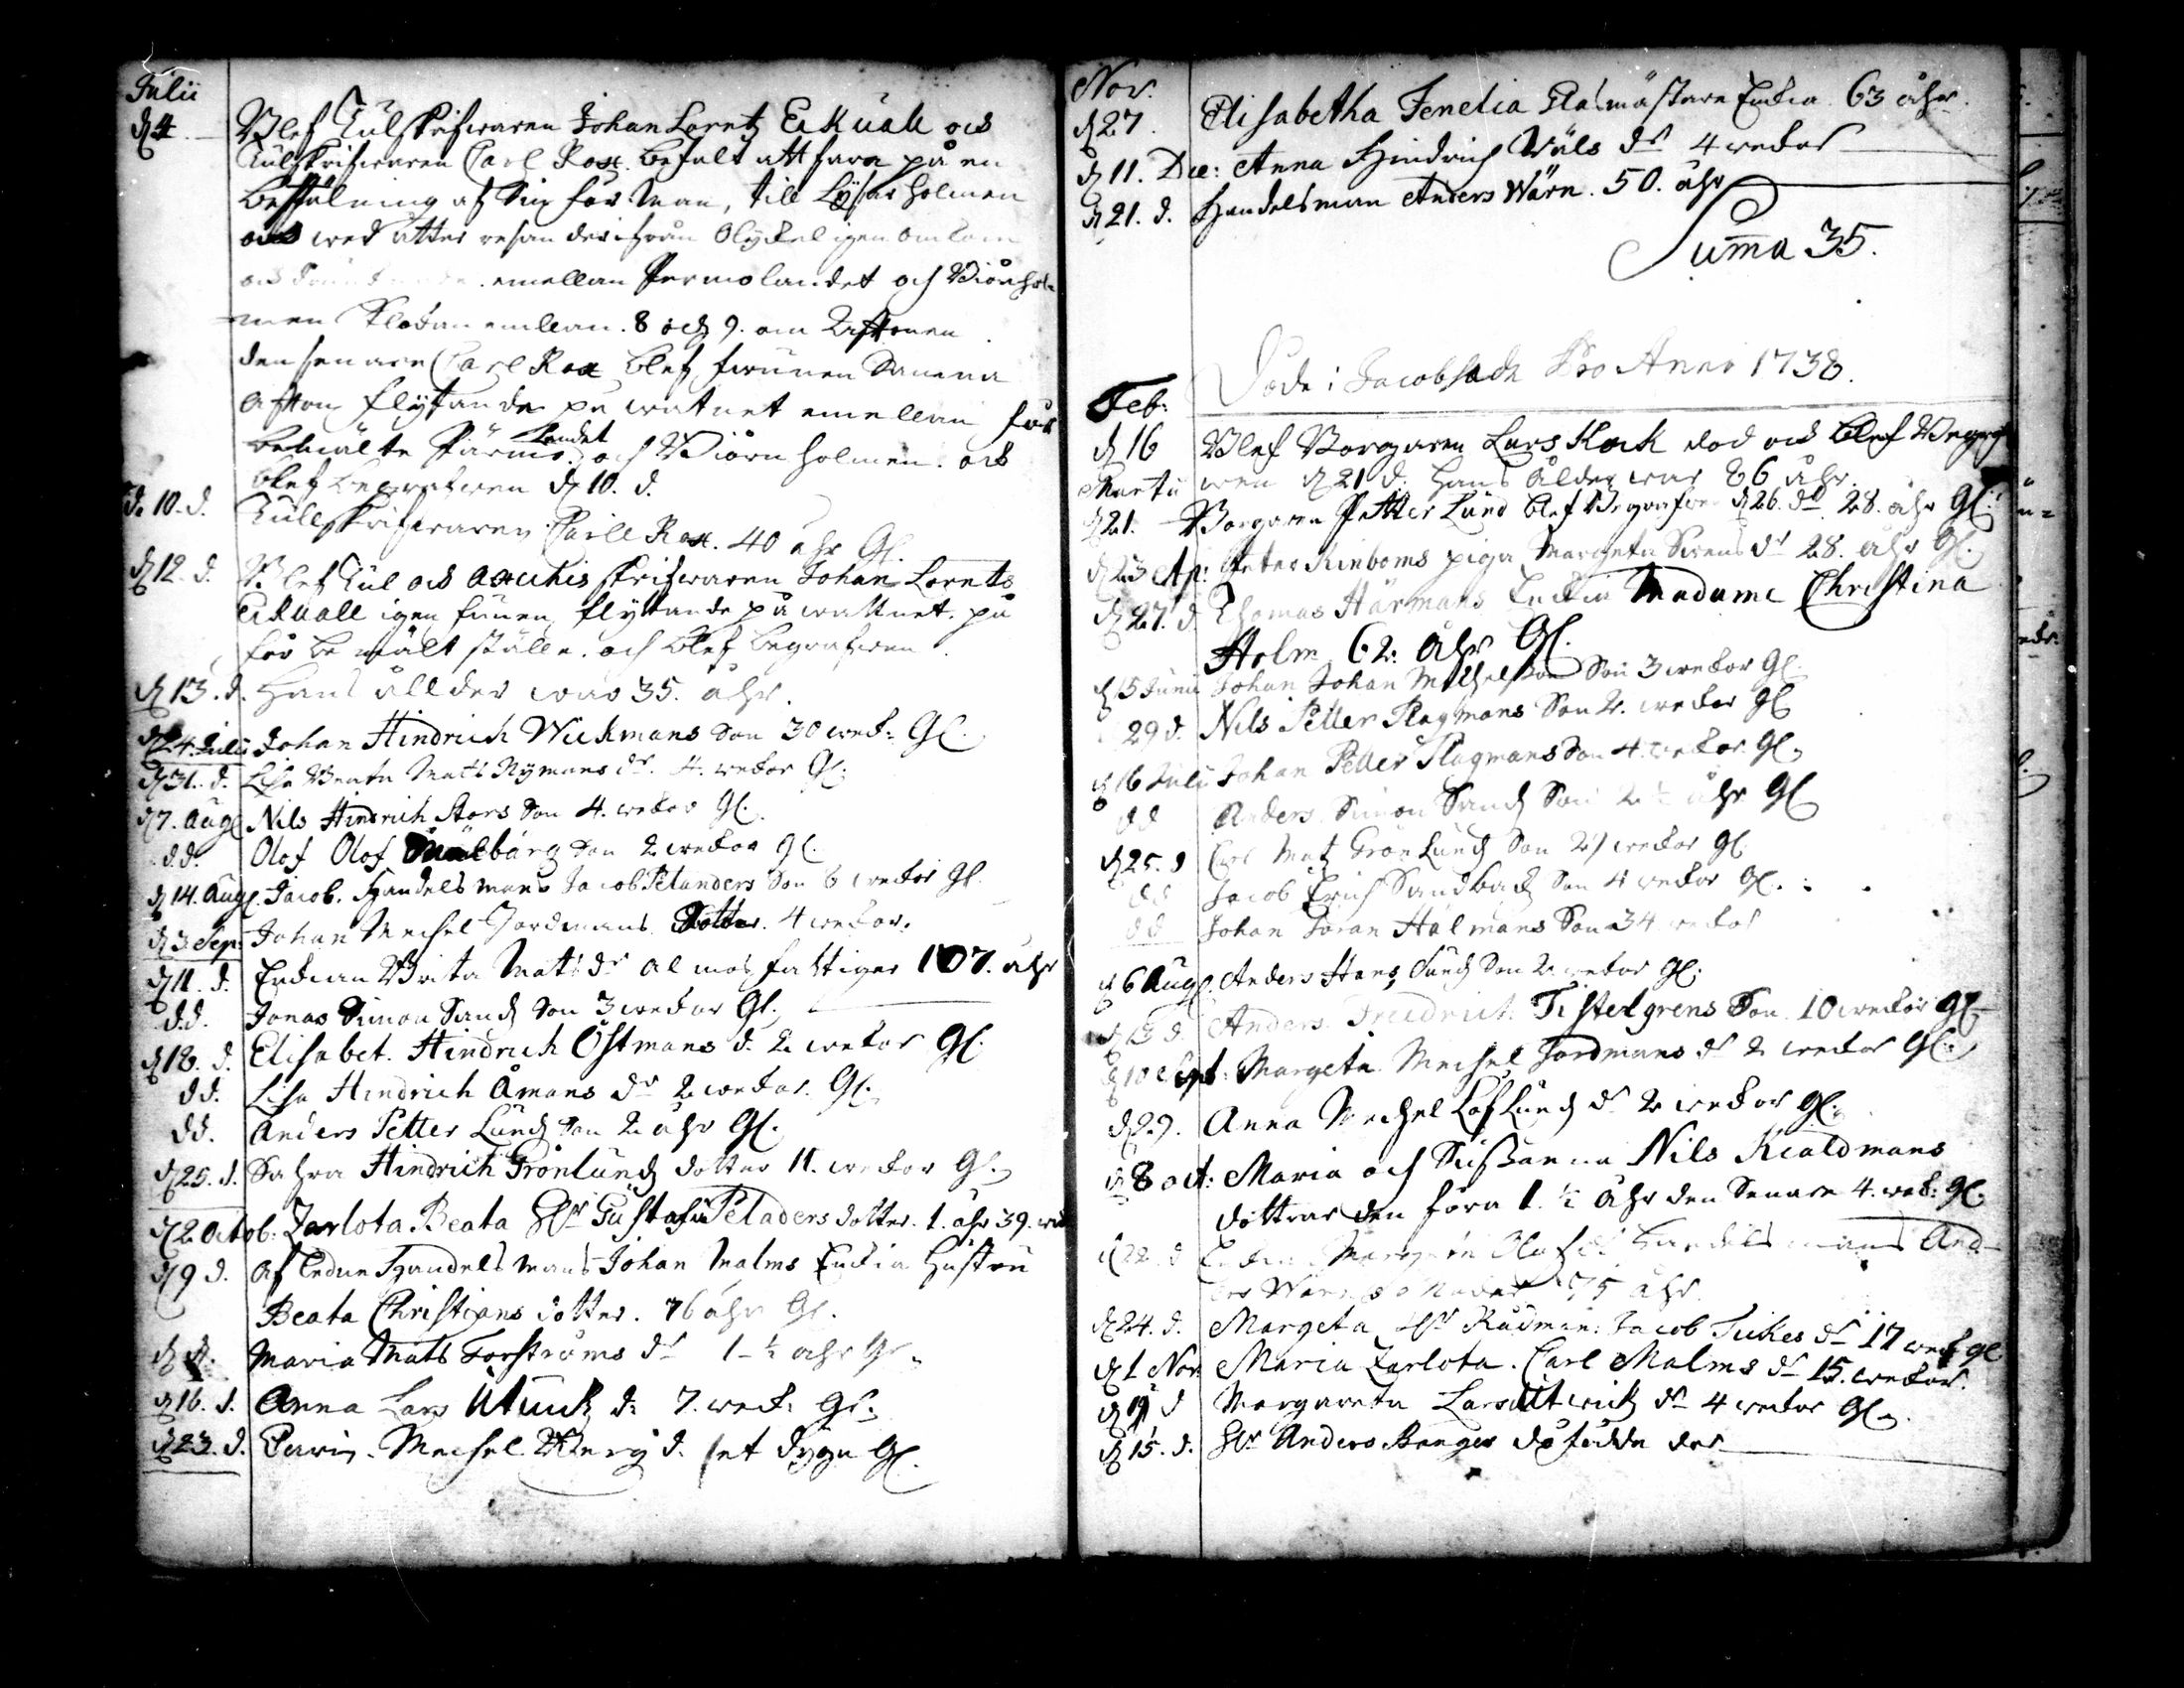 Julii
d 4 Blef Tulskrifwaren Johan Lorentz Eckuall och
Tulskrifwaren Carl Rox befalt att fara på en
befalning af sin förman, till Lysarholmen
och wed åtter resan derifrån olyckeligen omkom
och emellan Permolandet och Biörnhol-
men klockan emellan 8 och 9. om afftonen
den senare Carl Rox blef funnen samma
afton flytande på watnet emellan för
bemälte Pärmölandet och Biörnholmen. och
blef begrafwen d 10. d.
d. 10. d. Tullskrifwaren Carll Rox. 40 åhr Gl.
d 12. d. Blef Tul och accikis skrifwaren Johan Lorentz
Eckuall igen funen flytande på wattnet. på
för be mält ställe. och blef begrafwen
d 13. d. Hans ållder war 35. åhr.
d 24. Julii Johan Hindrich Wickmans Son 30 weck: Gl.
d 31. d. Lisa Beata Mats Nymans dr. 4. weckor Gl:
d 7. Aug Nils Hindrich Stors Son 4. weckor Gl.
d.d. Olof Olof Son 2 weckor Gl.
d 14. Aug. Jacob. Handelsmans Jacob Pelanders Son 6 weckor Gl.
d 3 Sep: Johan Mechel Jordmans Dotter. 4 weckor.
d 11. d. Enckian Brita Mats dr almos fattiger 107. åhr
d.d. Jonas Simon Sand Son 3 weckor Gl.
d 18. d. Elisabet. Hindrich Östmans d. 2 weckor Gl.
d d. Lisa Hindrich Åmans dr 2 weckor. Gl.
d d. Anders Petter Lund Son 2 åhr Gl.
d 25. d. Sahra Hindrich Grönlund dotter 11. weckor Gl.
d 2 Octob: Zarlota Beata Hr Gustafu Peladers dotter. 1. åhr 39. wek
d 9 d. Af ledne Handelsmans Johan Malms Enckia Hustru
Beata Christians dotter. 76 åhr Gl.
d d. Maria Mats Forströms dr 1-½ åhr Gl.
d 16. d. Anna Lars Utwick d: 7. weck: Gl.
d 23. d. Carin. Mechel d. et dygn Gl.
Nov.
d 27. Elisabetha Fenelia Glasmästare Enckia 63 åhr.
d 11. Dec: Anna Hindrich Wäls dr 4 weckor
d 21. d. Handelsman Anders Wärn. 50. åhr
Suma 35.
Döde i Jacobstadh Pro Anno 1738.
Feb:
d 16 Blef Borgaren Lars Kock död och blef Begrf
wen d 21 d: hans ålder war 86 åhr.
Martii
d 21. Borgaren Petter Lund blef Begrafwen d 26. do 28. åhr Gl.
d 23 Ap: Peter Rinboms piga Margeta Swens dr 28. åhr Gl.
d 27. d. Thomas Härmans Enckia Madame Christina
Holm 62. åhr Gl.
d 15 Junii Johan Johan Michelson Son 3 weckor Gl.
29 d. Nils Petter Plagmans Son 2. weckor Gl
d 16 Julii Johan Petter Plagmans Son 4. weckor. Gl.
d d Anders Simon Sand Son 2 ½ åhr Gl
d 25. d Mats Grönlund Son weckor Gl.
d d Jacob Erich Sandback Son 4 weckor Gl.
d d Johan Jöran Hälmans Son 34 weckor
d 6 Aug. Anders Hans Sund Son 2 weckor Gl.
d 13 d. Anders Fredrich Tistelgrens Son 10 weckor Gl
d 10 Sept: Margeta Mechel Jordmans dr 2 weckor Gl.
d 29. Anna Mechel Löflund dr 2 weckor Gl.
d 8 oct: Maria och Sussanna Nils Kialdmans
döttrar den föra 1. ½ åhr den Senare 4. wek: Gl.
d 22. d Olofs dr Handelsmans And-
ers Wärns Moder 75 åhr.
d 24. d. Margeta Hr Rådman: Jacob Tickes dr 17 weck Gl
d 1 Nov: Maria Zarlota. Carl Malms dr 15. weckor.
d 9 d Margareta Lars Utwick dr 4 weckor Gl.
d 15. d. Hr Anders Banges dö födde dr